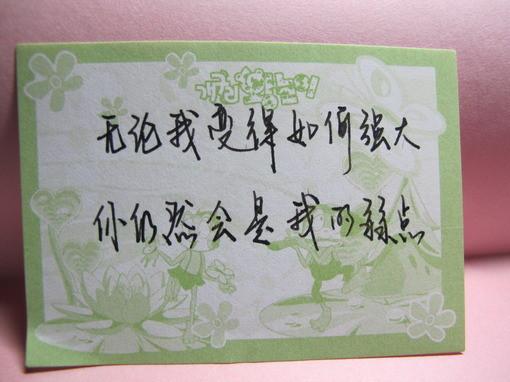 无论我变得如何强大
你仍然会是我的弱点